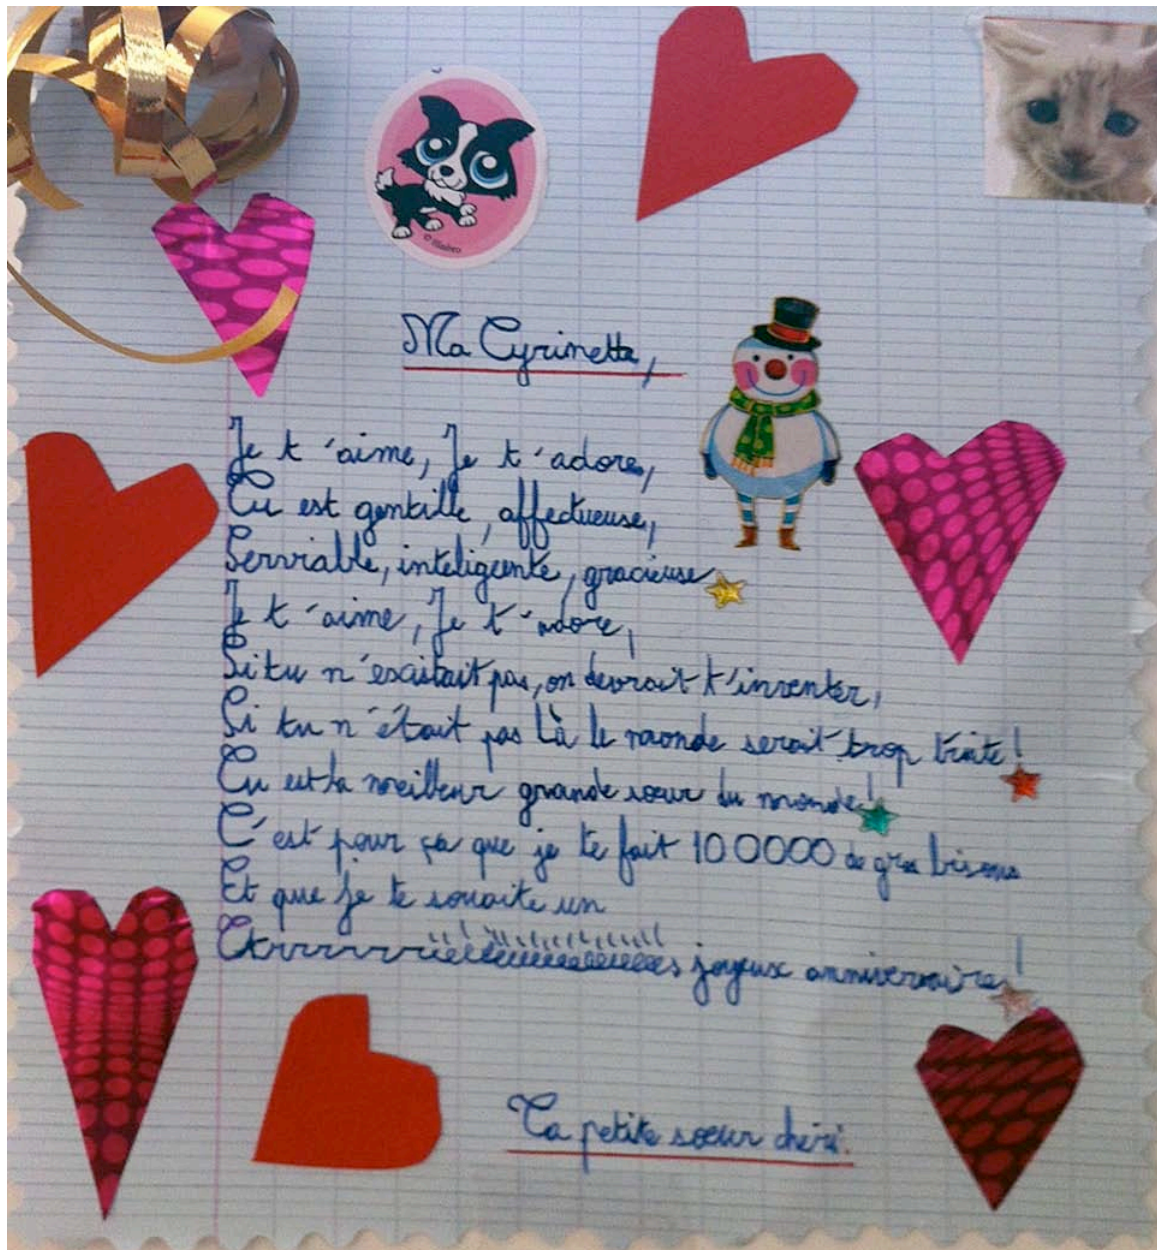 Ma Cyrinette,
Je t'aime, Je t'adore,
Tu est gentille, affectueuse,
Serviable, inteligente, gracieuse
Je t'aime, Je t'adore,
Si tu n'éxistait pas, on devrait t'inventer,
Si tu n'était pas là le monde serait trop triste !
Tu est la meilleur grande sœur du monde !
C'est pour ça que je te fait 100000 de gros bisous
Et que je te souaite un
joyeux anniversaire !
Ta petite sœur chéri.